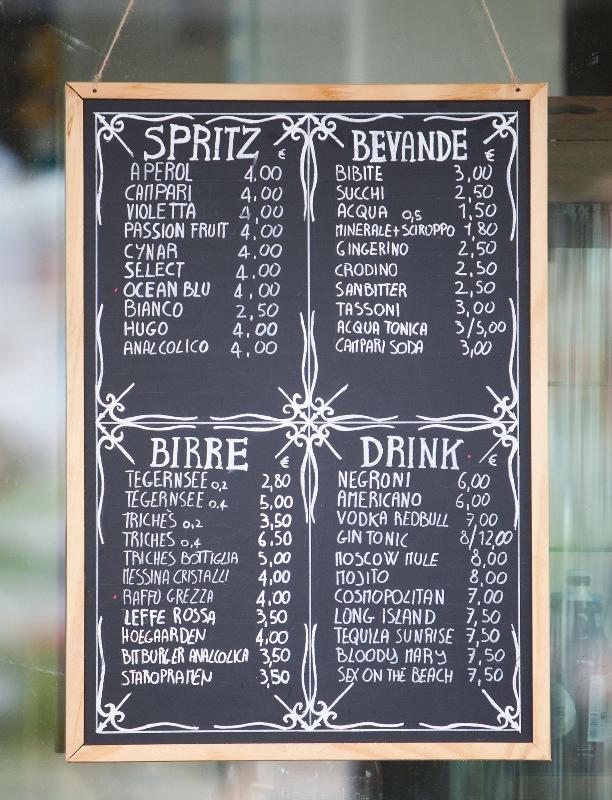 SPRITZ €
APEROL 4,00
CAMPARI 4,00
VIOLETTA 4,00
PASSION FRUIT 4,00
CYNAR 4,00
SELECT 4,00
OCEAN BLU 4,00
BIANCO 2,50
HUGO 4,00
ANALCOLICO 4,00
BEVANDE €
BIBITE 3,00
SUCCHI 2,50
ACQUA 0,5 1,50
MINERALE+SCIROPPO 1,80
GINGERINO 2,50
CRODINO 2,50
SANBITTER 2,50
TASSONI 3,00
ACQUA TONICA 3/5,00
CAMPARI SODA 3,00
BIRRE €
TEGERNSEE 0,2 2,80
TEGERNSEE 0,4 5,00
TRICHES 0,2 3,50
TRICHES 0,4 6,50
TRICHES BOTTIGLIA 5,00
MESSINA CRISTALLI 4,00
RAFFO GREZZA 4,00
LEFFE ROSSA 3,50
HOEGAARDEN 4,00
BITBURGER ANALCOLICA 3,50
STAROPRAMEN 3,50
DRINK €
NEGRONI 6,00
AMERICANO 6,00
VODKA REDBULL 7,00
GIN TONIC 8/12,00
MOSCOW MULE 8,00
MOJITO 8,00
COSMOPOLITAN 7,00
LONG ISLAND 7,50
TEQUILA SUNRISE 7,50
BLOODY MARY 7,50
SEX ON THE BEACH 7,50